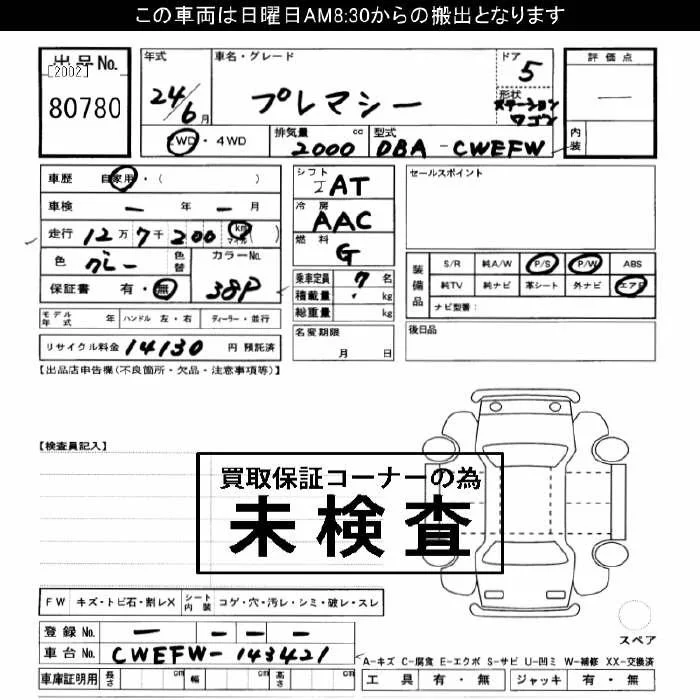 この車両は日曜日AM8:30からの搬出となります
出品No. 年式 車名・グレード ドア 5 評価点
[2002] 24/6月 プレマシー 形状 ステーションワゴン —
80780
2WD・4WD 排気量 2000 cc 型式 DBA-CWEFW 内装
車歴 自家用・( ) シフト IAT セールスポイント
車検 — 年 — 月 冷房 AAC
走行 12万7千200 km マイル ( ) 燃料 G
色 グレー 色替 カラーNo. 38P 乗車定員 7名 装備品 S/R 純A/W P/S P/W ABS
保証書 有・無 積載量 ・ kg 純TV 純ナビ 革シート 外ナビ エアB
総重量 kg ナビ型番:
モデル年式 年 ハンドル 左・右 ディーラー・並行 名変期限 月 日 後日品
リサイクル料金 14130 円 預託済
【出品店申告欄(不良箇所・欠品・注意事項等)】
【検査員記入】
買取保証コーナーの為
未検査
FW キズ・トビ石・割レX シート内装 コゲ・穴・汚レ・シミ・破レ・スレ
登録No. — — — — スペア
車台No. CWEFW-143421
A-キズ C-腐食 E-エクボ S-サビ U-凹ミ W-補修 XX-交換済
車庫証明用 長さ cm 幅 cm 高さ cm 工具 有・無 ジャッキ 有・無